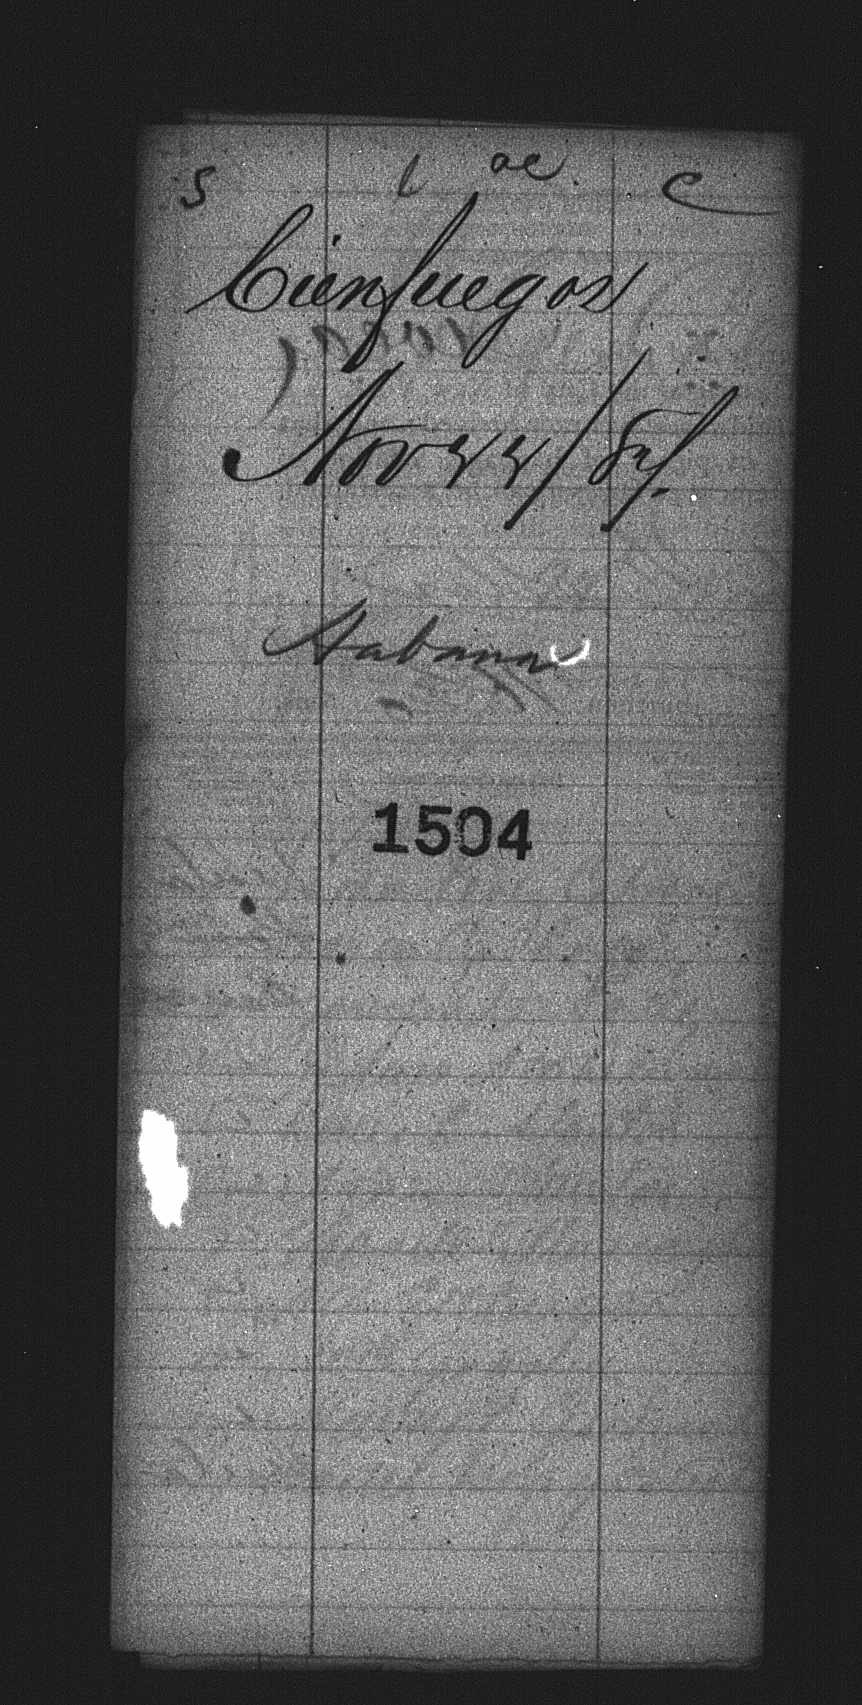 S l ae C
Cienfuegos
Nov 22/87.
Habana
1504